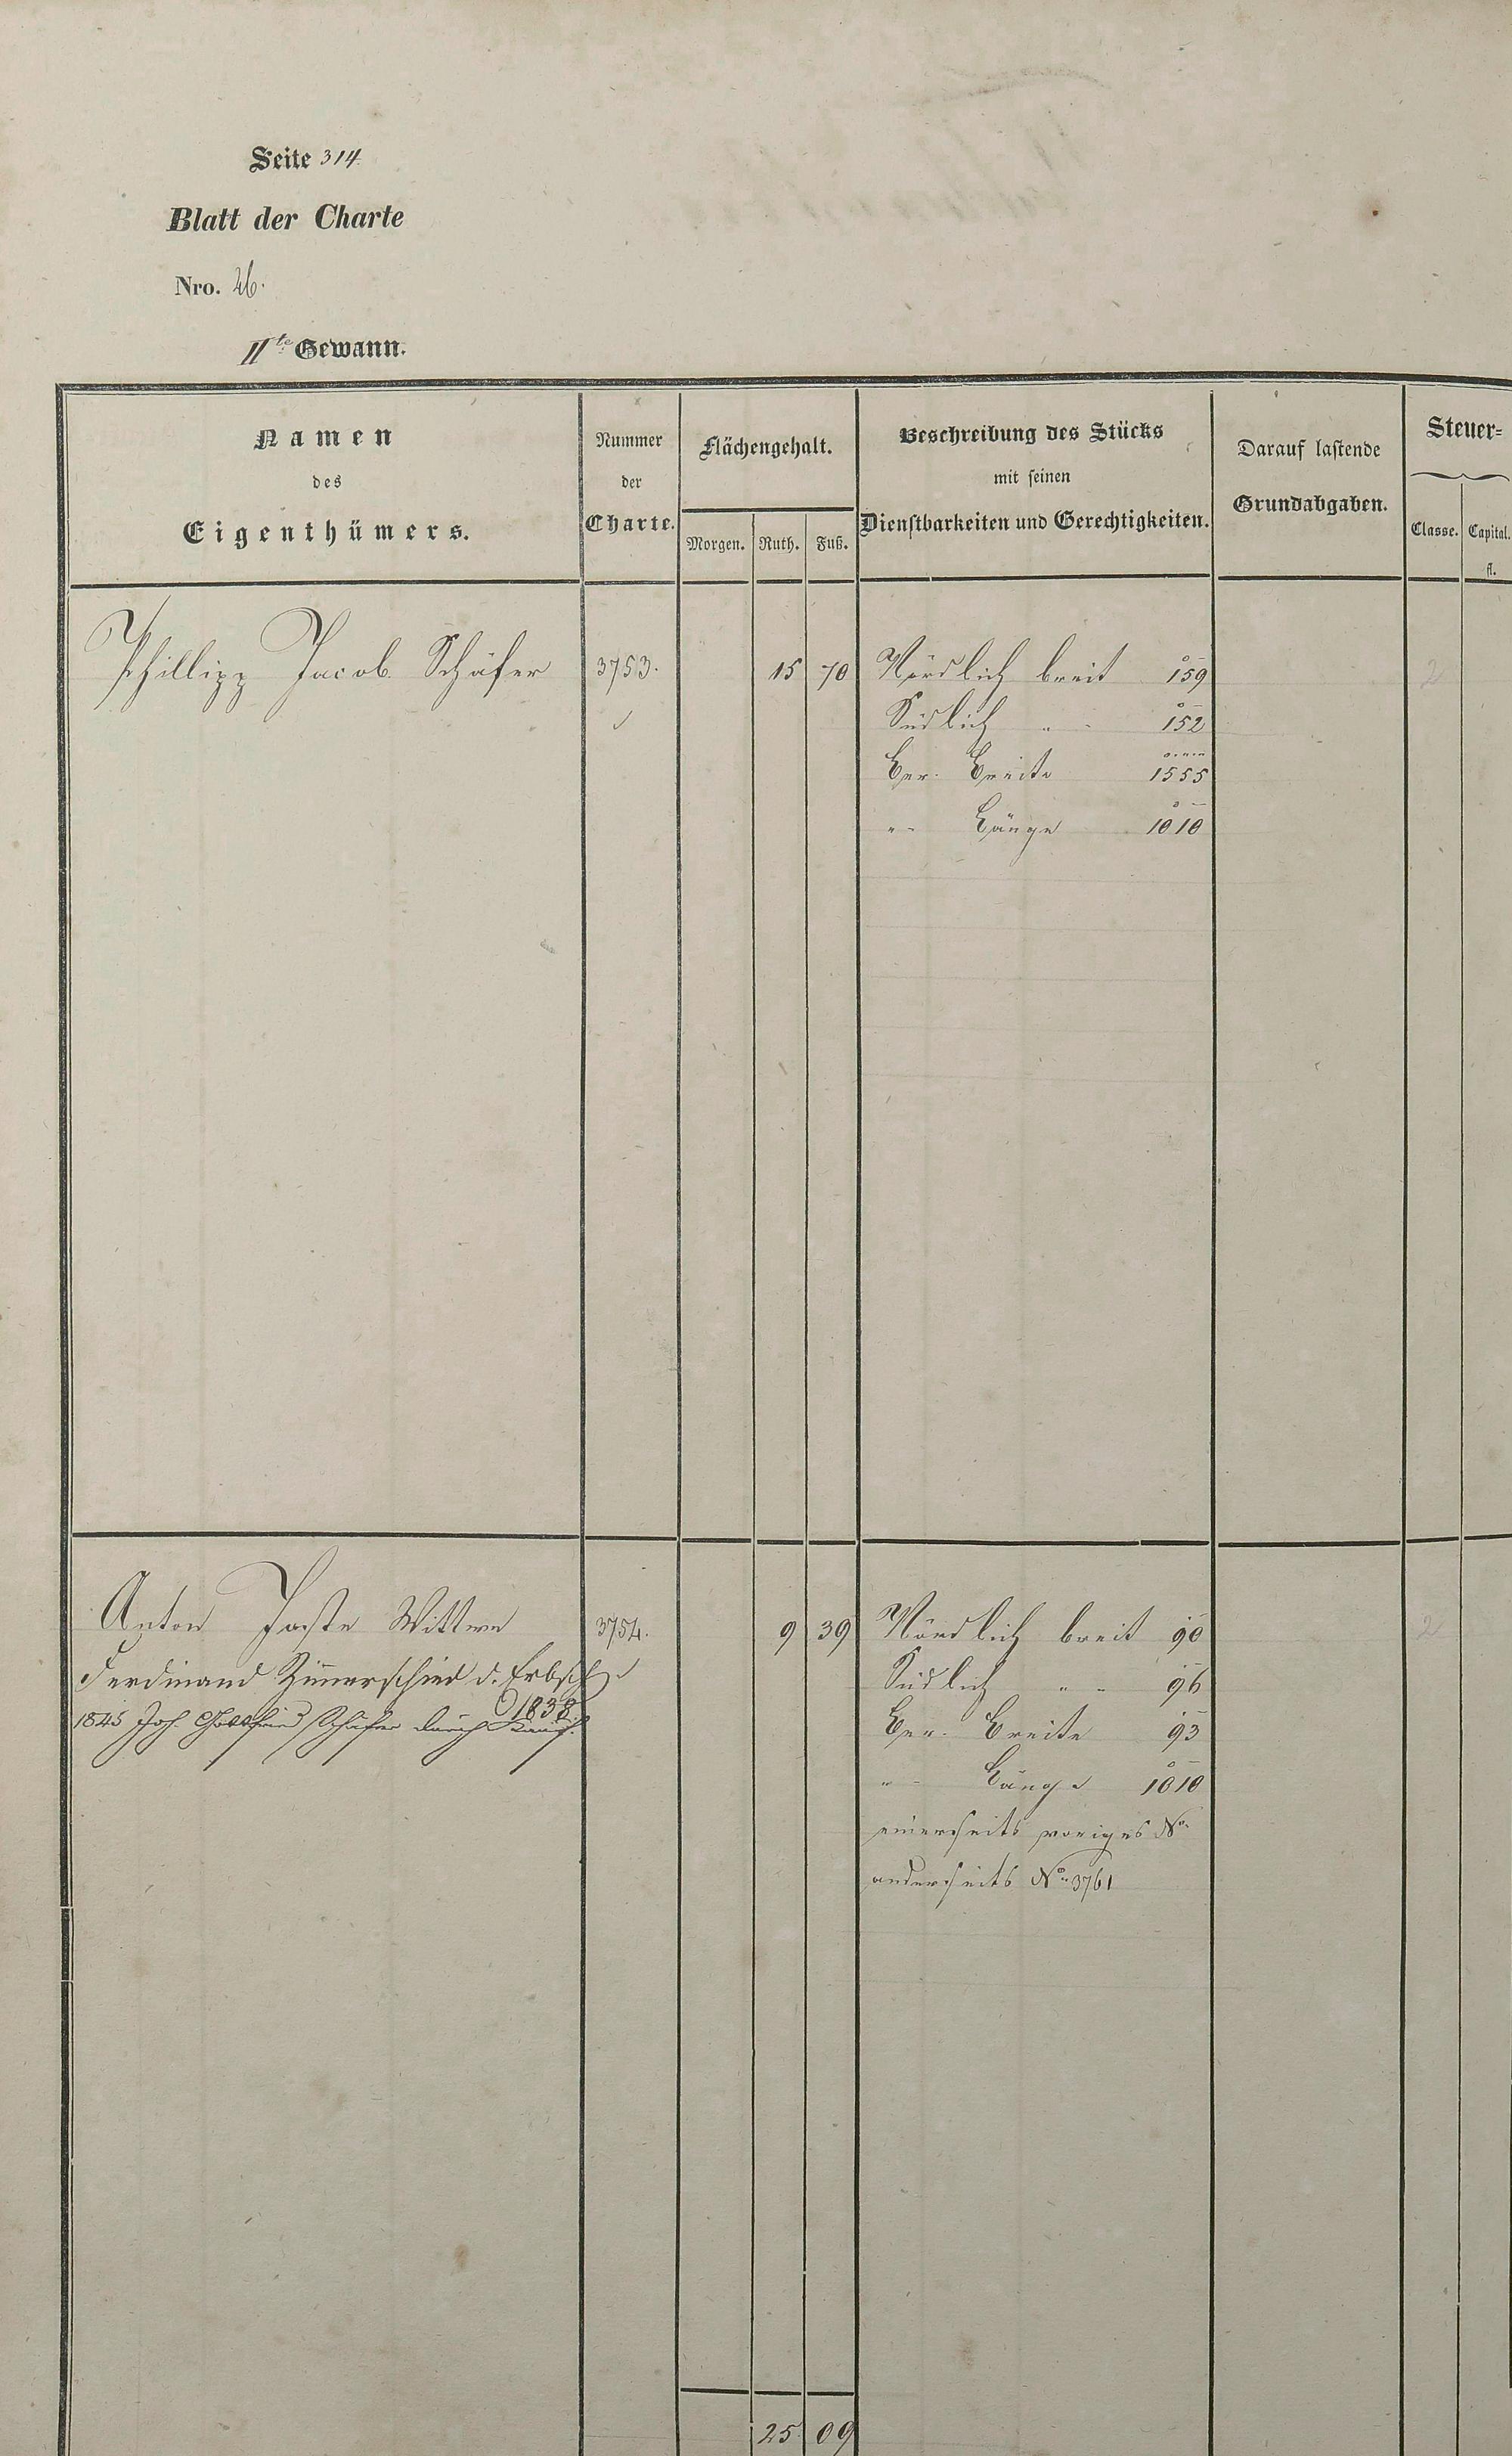 Seite 314
Blatt der Charte
Nro. 26.
IIte Gewann.
Namen
des
Eigenthümers.
Nummer
der
Charte.
Flächengehalt.
Morgen. Ruth. Fuß.
Beschreibung des Stücks
mit seinen
Dienstbarkeiten und Gerechtigkeiten.
Darauf lastende
Grundabgaben.
Steuer-
Classe. Capital.
fl.
Phillipp Jacob Schäfer 3753. 15 70 Nördlich breit 159 2
Südlich " - 152
Ber. Breite 1555
" - Länge 1010
Anton Wittwe 3754. 9 39 Nördlich breit 90 2
Ferdinand Zim̄erschied d. Erbsch.
1838.
1845 Joh. Gottfried Schäfer durch Kauf.
Südlich " - 96
Ber. Breite 93
" - Länge 1010
einerseits voriges No.
anderseits No. 3761
25 09